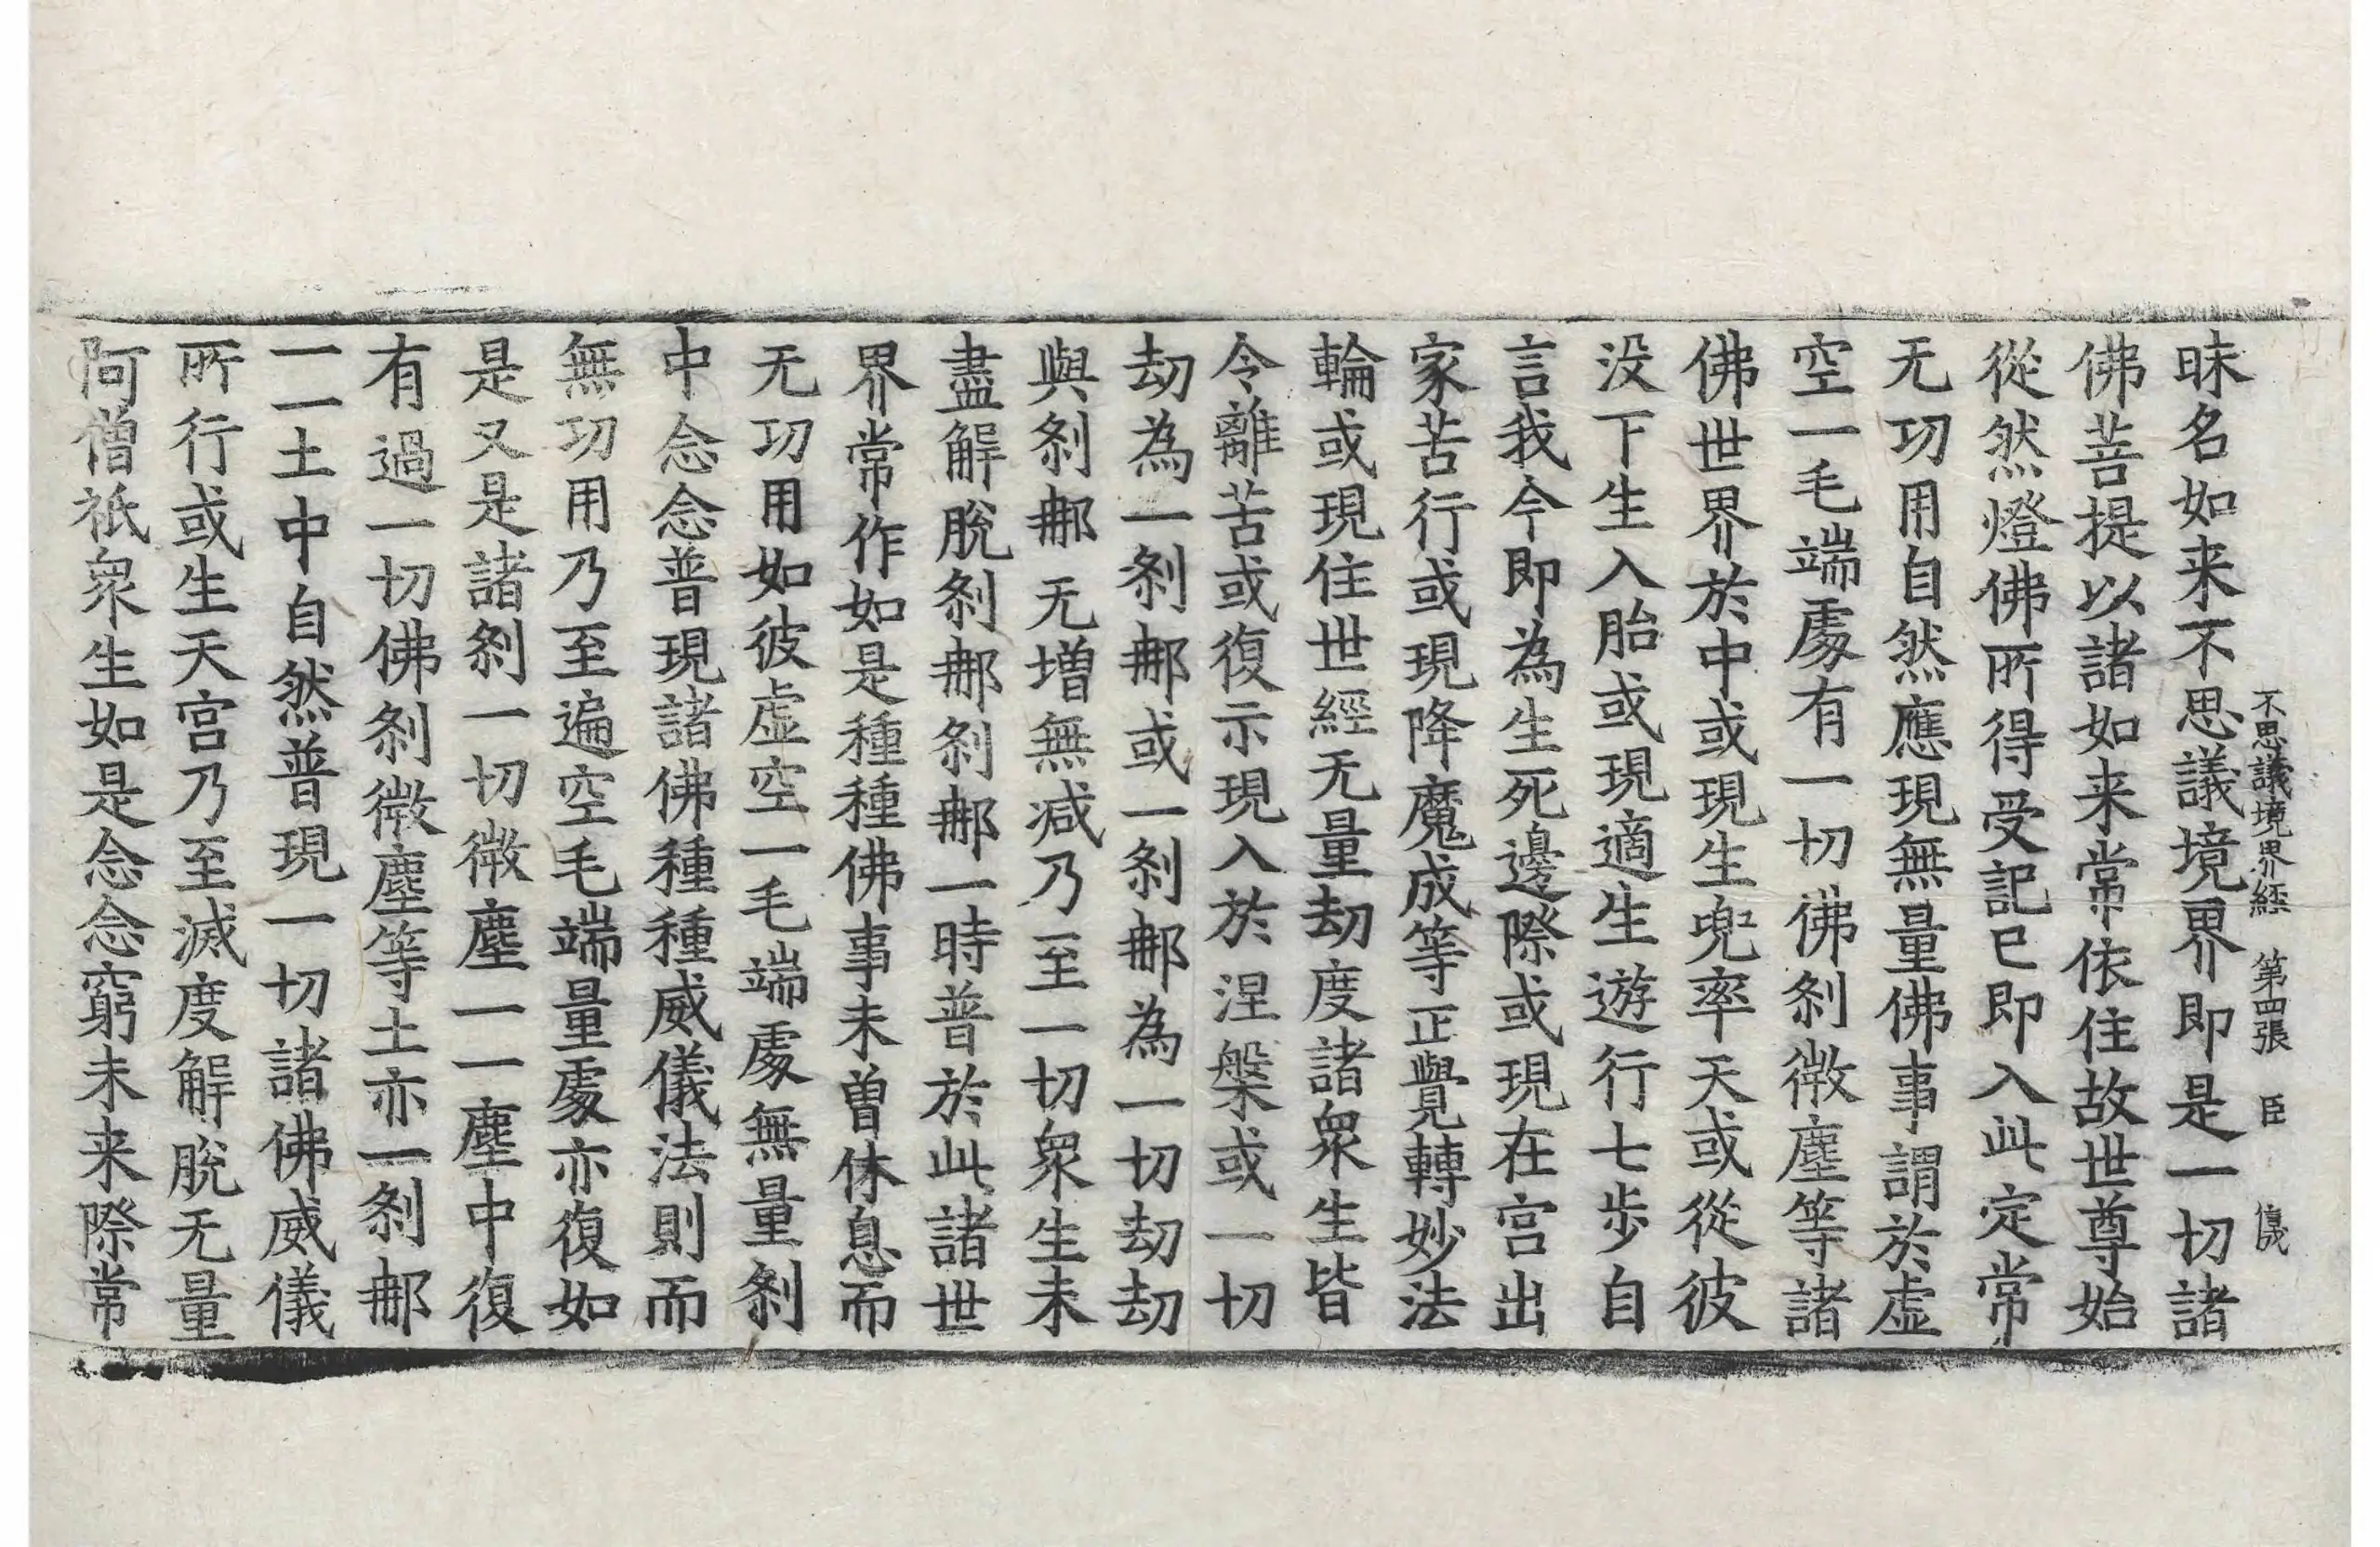 不思議境界經 第四張 臣
昧名如来不思議境界即是一切諸
佛菩提以諸如来常依住故世尊始
從然燈佛所得受記已即入此定常
无功用自然應現無量佛事謂於虛
空一毛端處有一切佛刹微塵等諸
佛世界於中或現生兜率天或從彼
没下生入胎或現適生遊行七步自
言我今即為生死邊際或現在宫出
家苦行或現降魔成等正覺轉妙法
輪或現住世經无量劫度諸衆生皆
令離苦或復示現入於涅槃或一切
劫為一刹那或一刹那為一切劫劫
與刹那无增無减乃至一切衆生未
盡解脫刹那刹那一時普於此諸世
界常作如是種種佛事未曽休息而
无功用如彼虛空一毛端處無量刹
中念念普現諸佛種種威儀法則而
無功用乃至遍空毛端量處亦復如
是又是諸刹一切微塵一一塵中復
有過一切佛刹微塵等土亦一刹那
一一土中自然普現一切諸佛威儀
所行或生天宫乃至滅度解脫无量
阿僧祇衆生如是念念窮未来際常